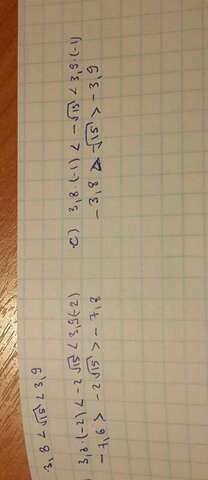 3,8 < √15 < 3,9
) 3,8·(-2) < -2√15 < 3,9(-2)
-7,6 > -2√15 > -7,8
c) 3,8·(-1) < -√15 < 3,9·(-1)
-3,8 > -√15 > -3,9